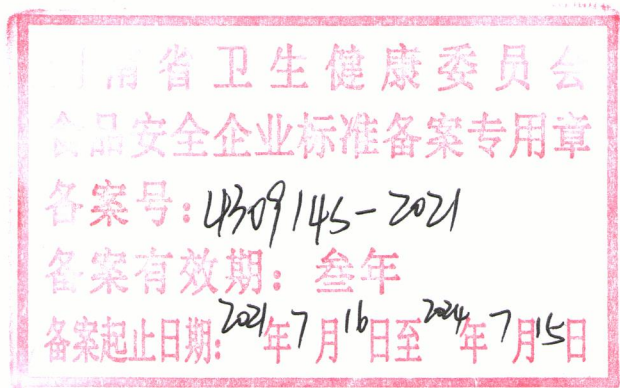 湖南省卫生健康委员会
食品安全企业标准备案专用章
备案号：4309145-2021
备案有效期：叁年
备案起止日期：2021年7月16日至2024年7月15日